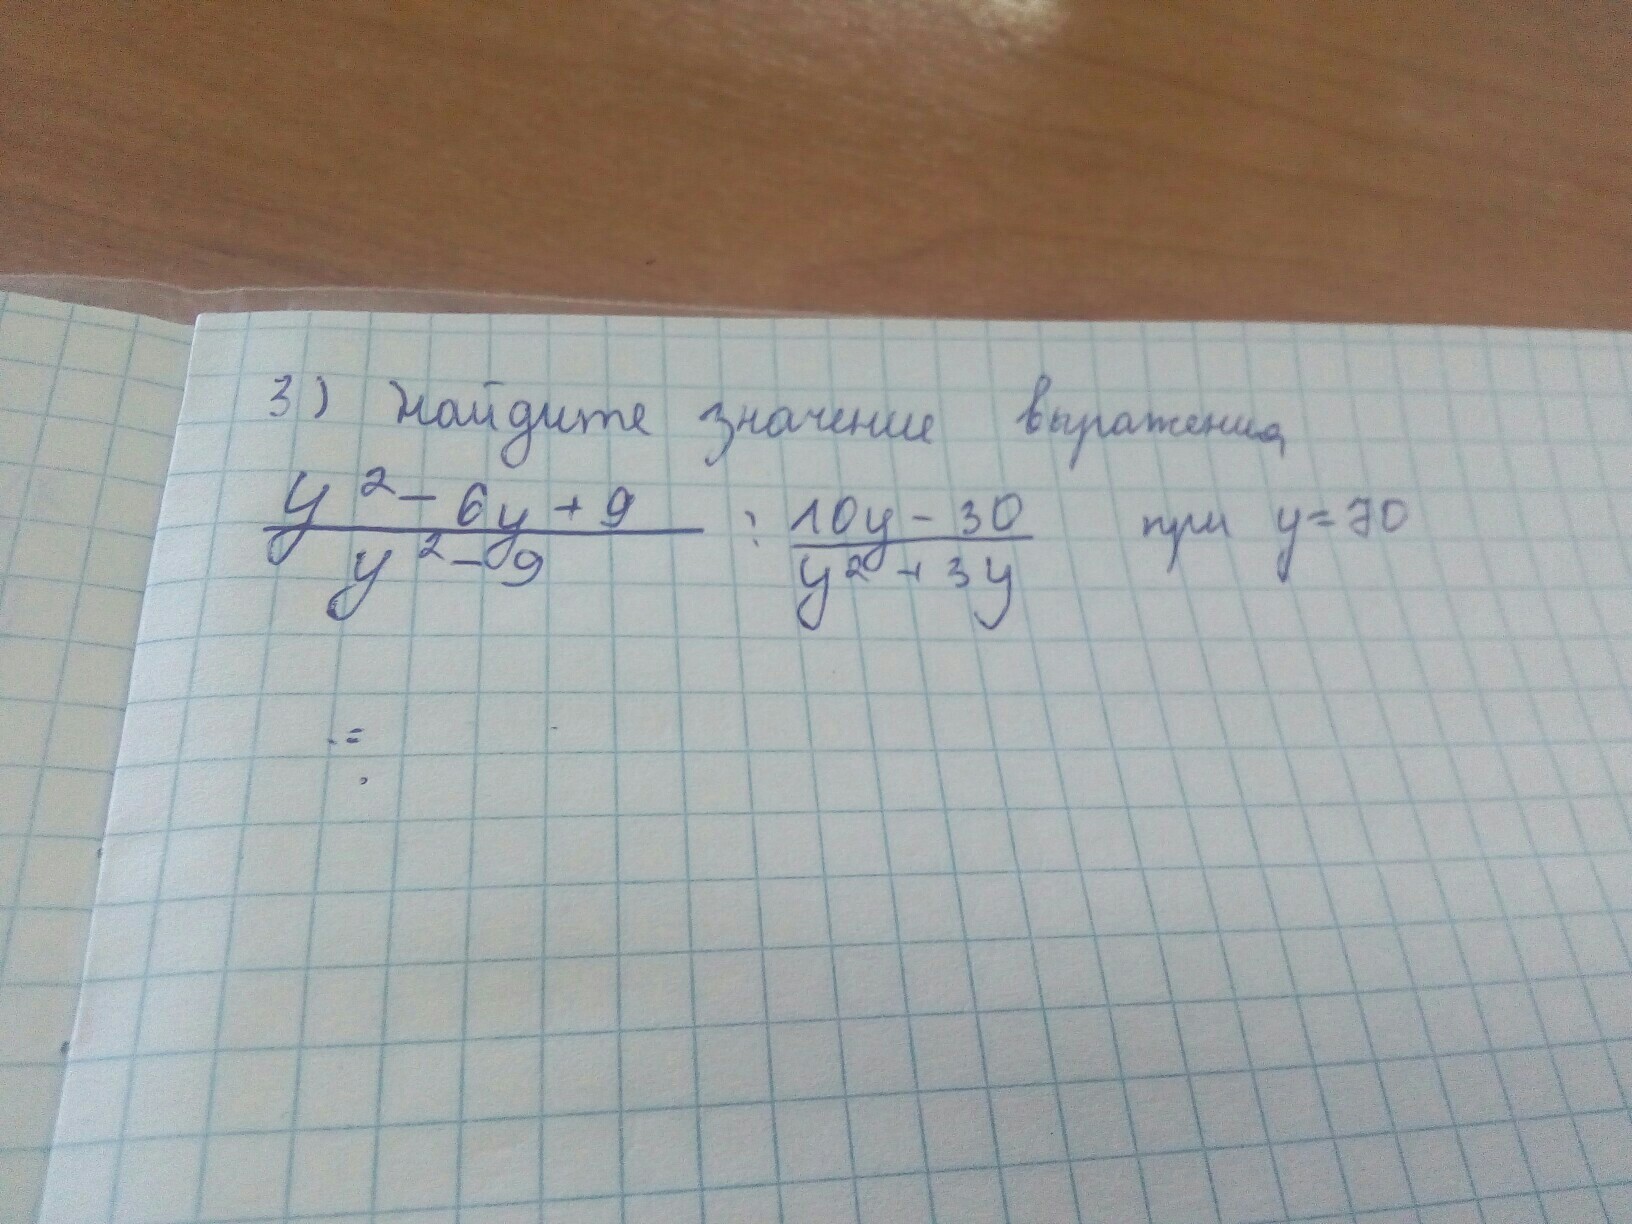 3) Найдите значение выражения
y² - 6y + 9 / y² - 9 : 10y - 30 / y² + 3y при y = 70
=